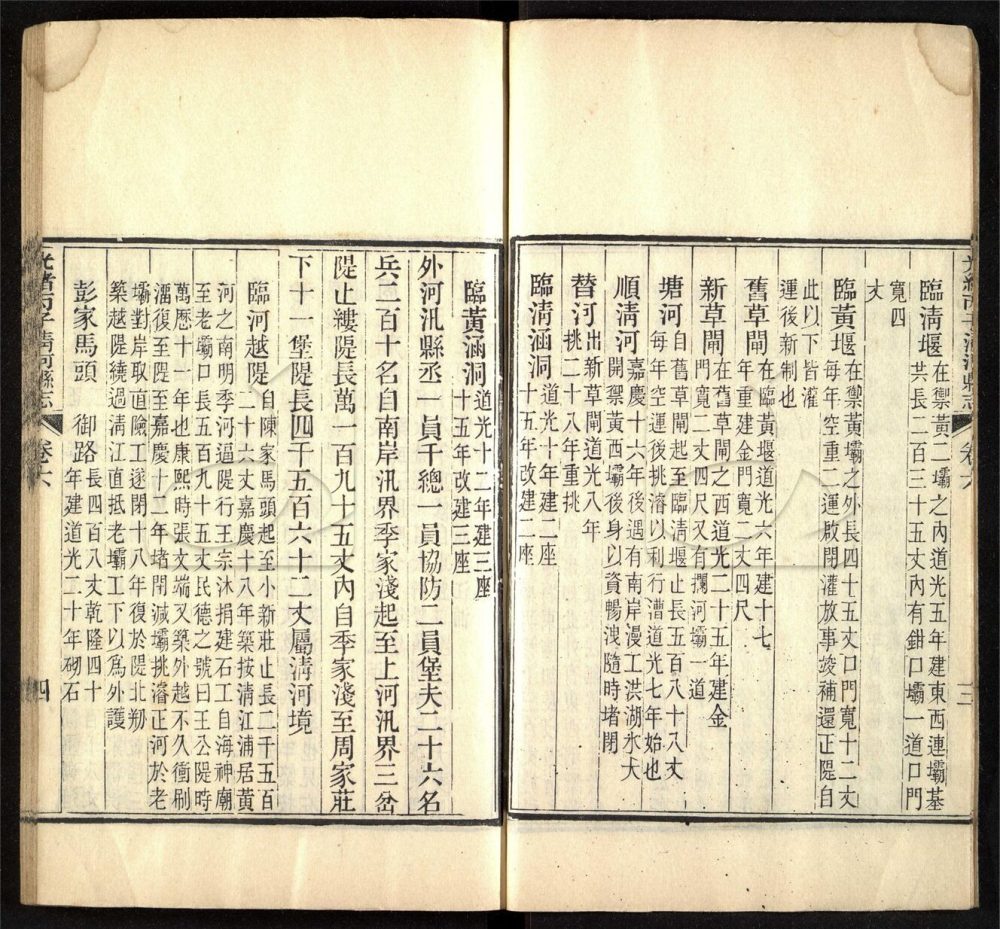 臨清堰在禦黃二壩之內道光五年建東西連壩基
共長二百三十五丈內有鉗口壩一道口門
寬四
丈
臨黃堰在禦黃壩之外長四十五丈口門寬十二丈
每年空重二運啟閉灌放事竣補還正隄自
此以下皆灌
運後新制也
舊草閘在臨黃堰道光六年建十七
年重建金門寬二丈四尺
新草閘在舊草閘之西道光二十五年建金
門寬二丈四尺又有攔河壩一道
塘河自舊草閘起至臨清堰止長五百八十八丈
每年空運後挑濬以利行漕道光七年始也
順清河嘉慶十六年後遇有南岸漫工洪湖水大
開禦黃西壩後身以資暢洩隨時堵閉
替河出新草閘道光八年
挑二十八年重挑
臨清涵洞道光十年建二座
十五年改建二座
三
臨黃涵洞道光十二年建三座
十五年改建三座
外河汛縣丞一員千總一員協防二員堡夫二十六名
兵二百十名自南岸汛界季家淺起至上河汛界三岔
隄止縷隄長萬一百九十五丈內自季家淺至周家莊
下十一堡隄長四千五百六十二丈屬清河境
臨河越隄自陳家馬頭起至小新莊止長二千五百
二十六丈嘉慶十八年築按清江浦居黃
河之南明季河逼隄行王宗沐捐建石工自海神廟
至老壩口長五百九十五丈民德之號曰王公隄時
萬歷十一年也康熙時張文端又築外越不久衝刷
湽復至嘉慶十二年堵閉減壩挑濬正河於老
壩對岸取直險工遂閉十八年復於隄北剏
築越隄繞過清江直抵老壩工下以爲外護
彭家馬頭 御路長四百八丈乾隆四十
年建道光二十年砌石
光緒丙子清河縣志 卷六 四